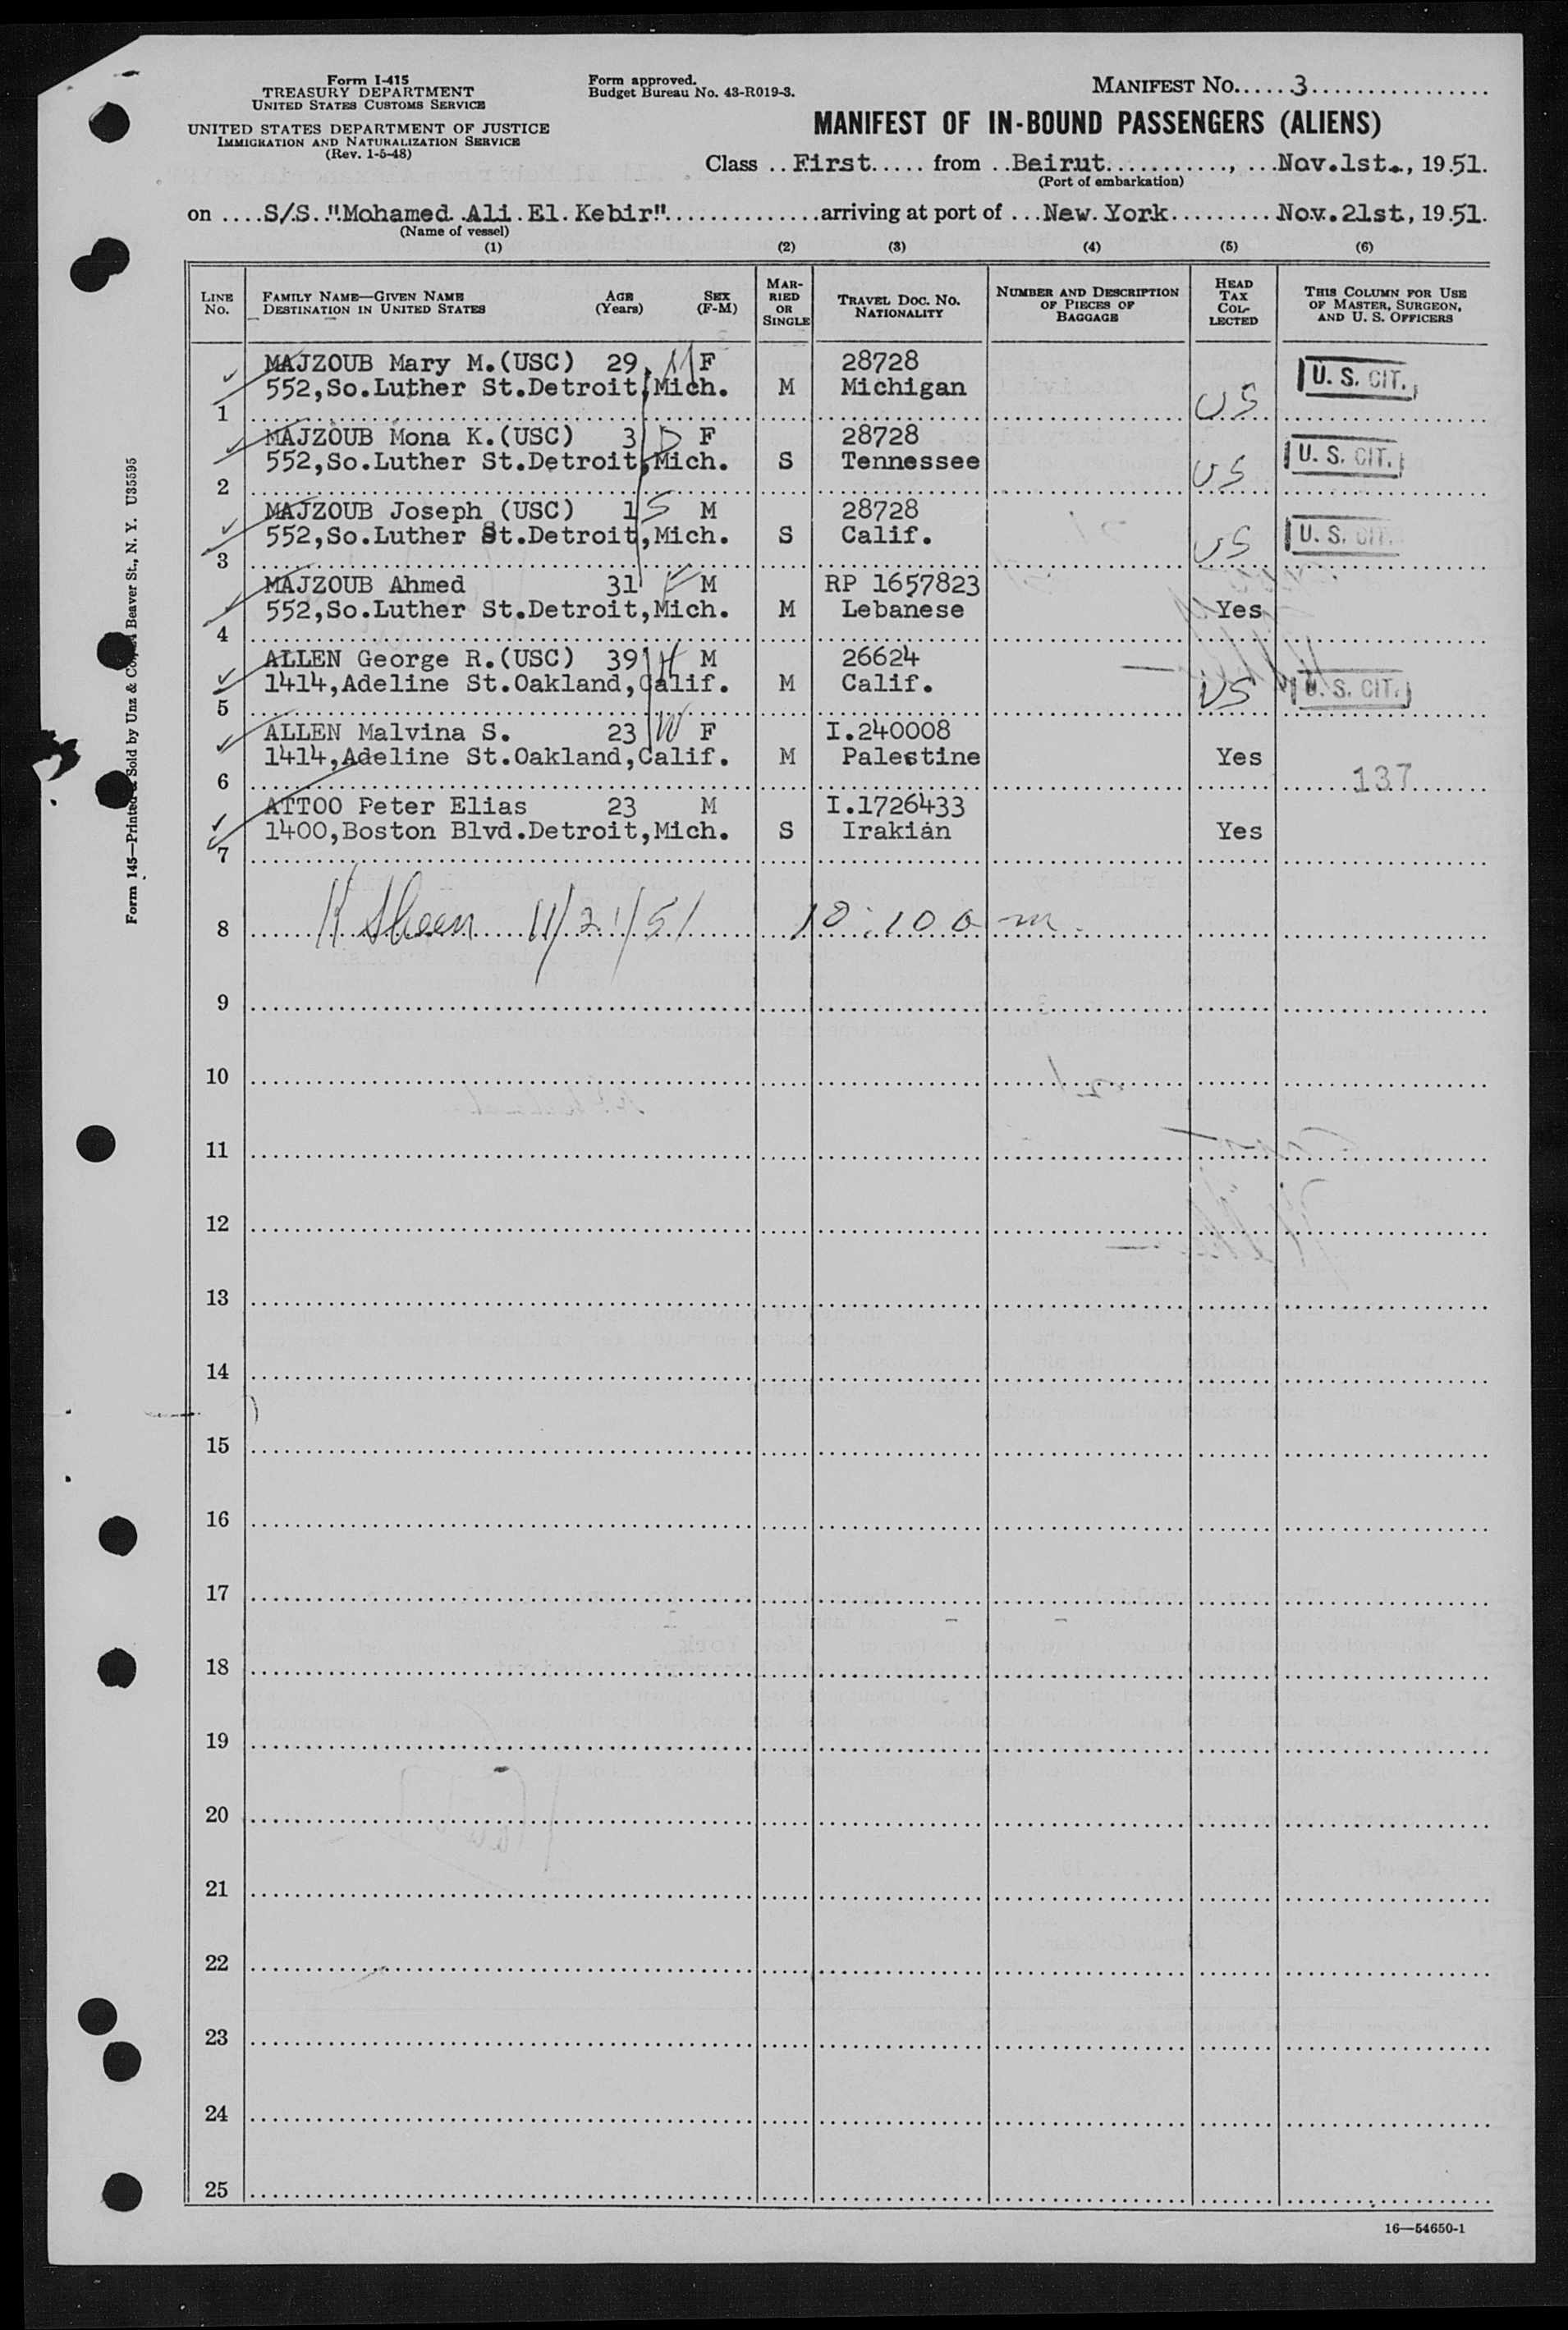 Form I-415
TREASURY DEPARTMENT
UNITED STATES CUSTOMS SERVICE
UNITED STATES DEPARTMENT OF JUSTICE
IMMIGRATION AND NATURALIZATION SERVICE
(Rev. 1-5-48)
Form approved.
Budget Bureau No. 43-R019-3.
MANIFEST No......3
MANIFEST OF IN-BOUND PASSENGERS (ALIENS)
Class ..First..... from ..Beirut............, ...Nov.1st., 1951.
(Port of embarkation)
on ....S/S."Mohamed.Ali.El.Kebir"...............arriving at port of ...New.York......... Nov.21st, 1951.
(Name of vessel)
(1) (2) (3) (4) (5) (6)
LINE No. FAMILY NAME—GIVEN NAME DESTINATION IN UNITED STATES AGE (Years) SEX (F-M) MARRIED OR SINGLE TRAVEL DOC. NO. NATIONALITY NUMBER AND DESCRIPTION OF PIECES OF BAGGAGE HEAD TAX COLLECTED THIS COLUMN FOR USE OF MASTER, SURGEON, AND U. S. OFFICERS
MAJZOUB Mary M.(USC) 29 M F 28728 U. S. CIT.
552,So.Luther St.Detroit,Mich. M Michigan US
1
MAJZOUB Mona K.(USC) 3 D F 28728 U. S. CIT.
552,So.Luther St.Detroit,Mich. S Tennessee US
2
MAJZOUB Joseph (USC) 1 S M 28728 U. S. CIT.
552,So.Luther St.Detroit,Mich. S Calif. US
3
MAJZOUB Ahmed 31 F M RP 1657823
552,So.Luther St.Detroit,Mich. M Lebanese Yes
4
ALLEN George R.(USC) 39 H M 26624
1414,Adeline St.Oakland,Calif. M Calif. US U. S. CIT.
5
ALLEN Malvina S. 23 W F I.240008
1414,Adeline St.Oakland,Calif. M Palestine Yes
6 137
ATTOO Peter Elias 23 M I.1726433
1400,Boston Blvd.Detroit,Mich. S Irakian Yes
7
8 11/21/51 10:10 a m.
9
10
11
12
13
14
15
16
17
18
19
20
21
22
23
24
25
16—54650-1
Form 145—Printed & Sold by Unz & Co., Beaver St., N. Y. U35595